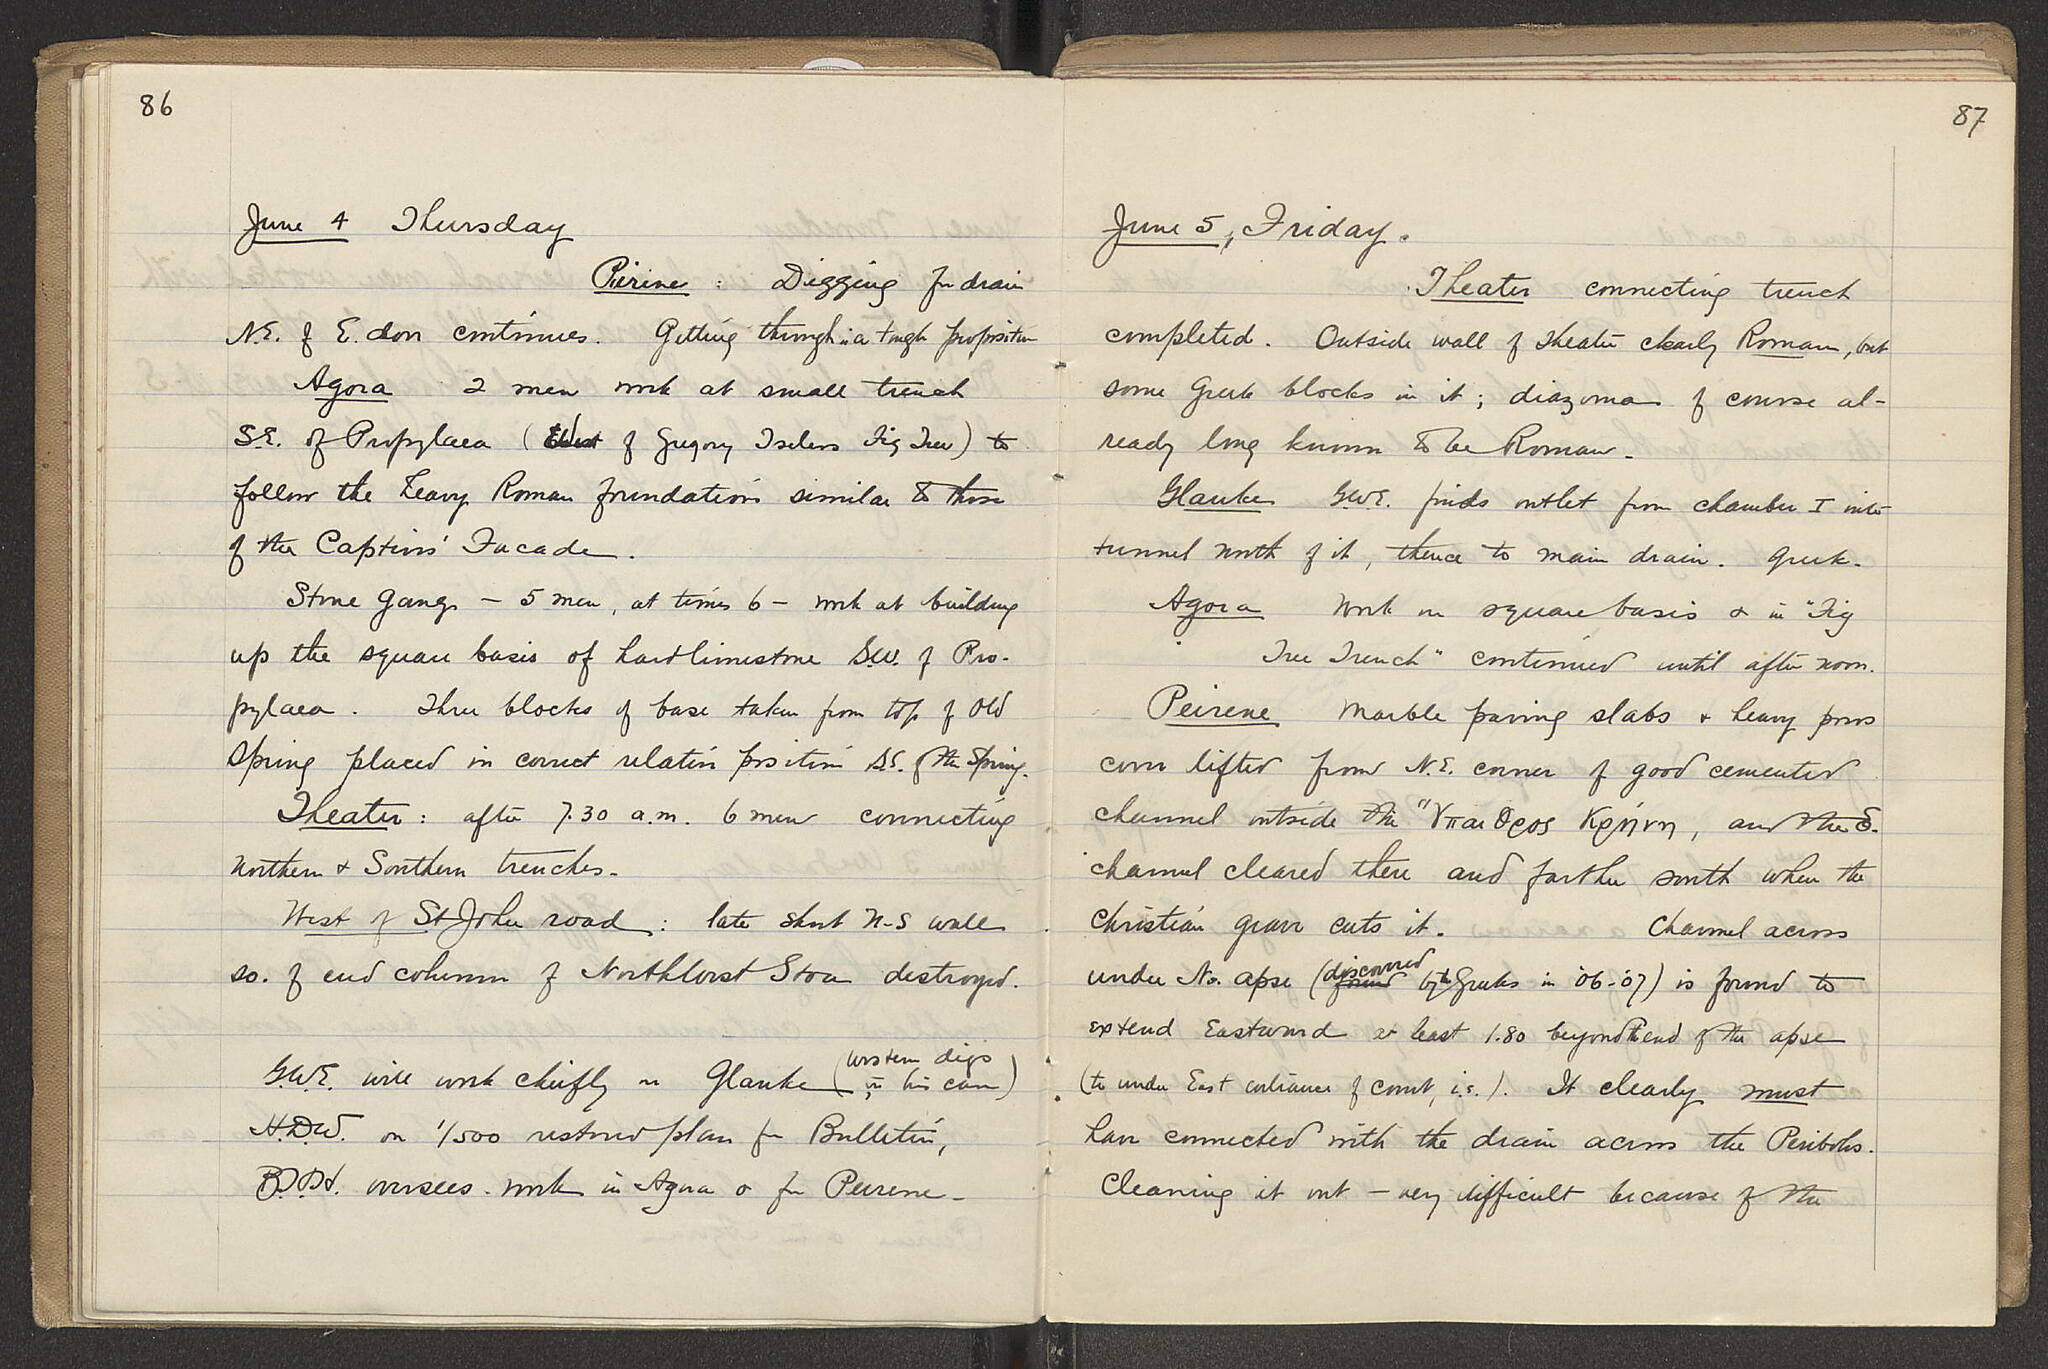 86
June 4 Thursday
Peirene : Digging for drain
N.E. of E. door continues. Getting through is a tough proposition
Agora 2 men work at small trench
S.E. of Propylaea (West of Gregory Iselers Fig Tree) to
follow the heavy Roman foundations similar to those
of the Captives' Facade.
Stone gang - 5 men, at times 6 - work at building
up the square basis of hard limestone S.W. of Pro-
pylaea. Three blocks of base taken from top of Old
Spring placed in correct relative position S.E. of the Spring.
Theater : after 7.30 a.m. 6 men connecting
Northern & Southern trenches.
West of St John road : late short N-S wall
so. of end column of Northwest Stoa destroyed.
G.W.E. will work chiefly on Glauke (western digs in his care)
H.D.W. on 1/500 restored plan for Bulletin,
B.H.H. oversees work in Agora & for Peirene -
87
June 5, Friday.
Theater connecting trench
completed. Outside wall of theater clearly Roman, but
some Greek blocks in it; diazoma of course al-
ready long known to be Roman.
Glauke G.W.E. finds outlet from chamber I into
tunnel north of it, thence to main drain. Greek.
Agora Work on square basis & in "Fig
Tree Trench" continued until after noon.
Peirene Marble paving slabs & heavy poros
cover lifted from N.E. corner of good cemented
channel outside the "Υπαιθρος Κρήνη, and the E.
channel cleared there and farther south where the
Christian grave cuts it. Channel across
under No. apse (discovered by the Greeks in '06-'07) is found to
extend Eastward at least 1.80 beyond the end of the apse
(to under East entrance of court, i.e.). It clearly must
have connected with the drain across the Peribolos.
Cleaning it out - very difficult because of the